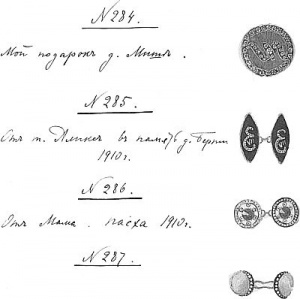 N 284.
Мой подарокъ д. Мишѣ.
N 285.
Отъ т. Аликсъ въ память д. Берти
1910 г.
N 286
Отъ Мама. пасха 1910 г.
N 287.